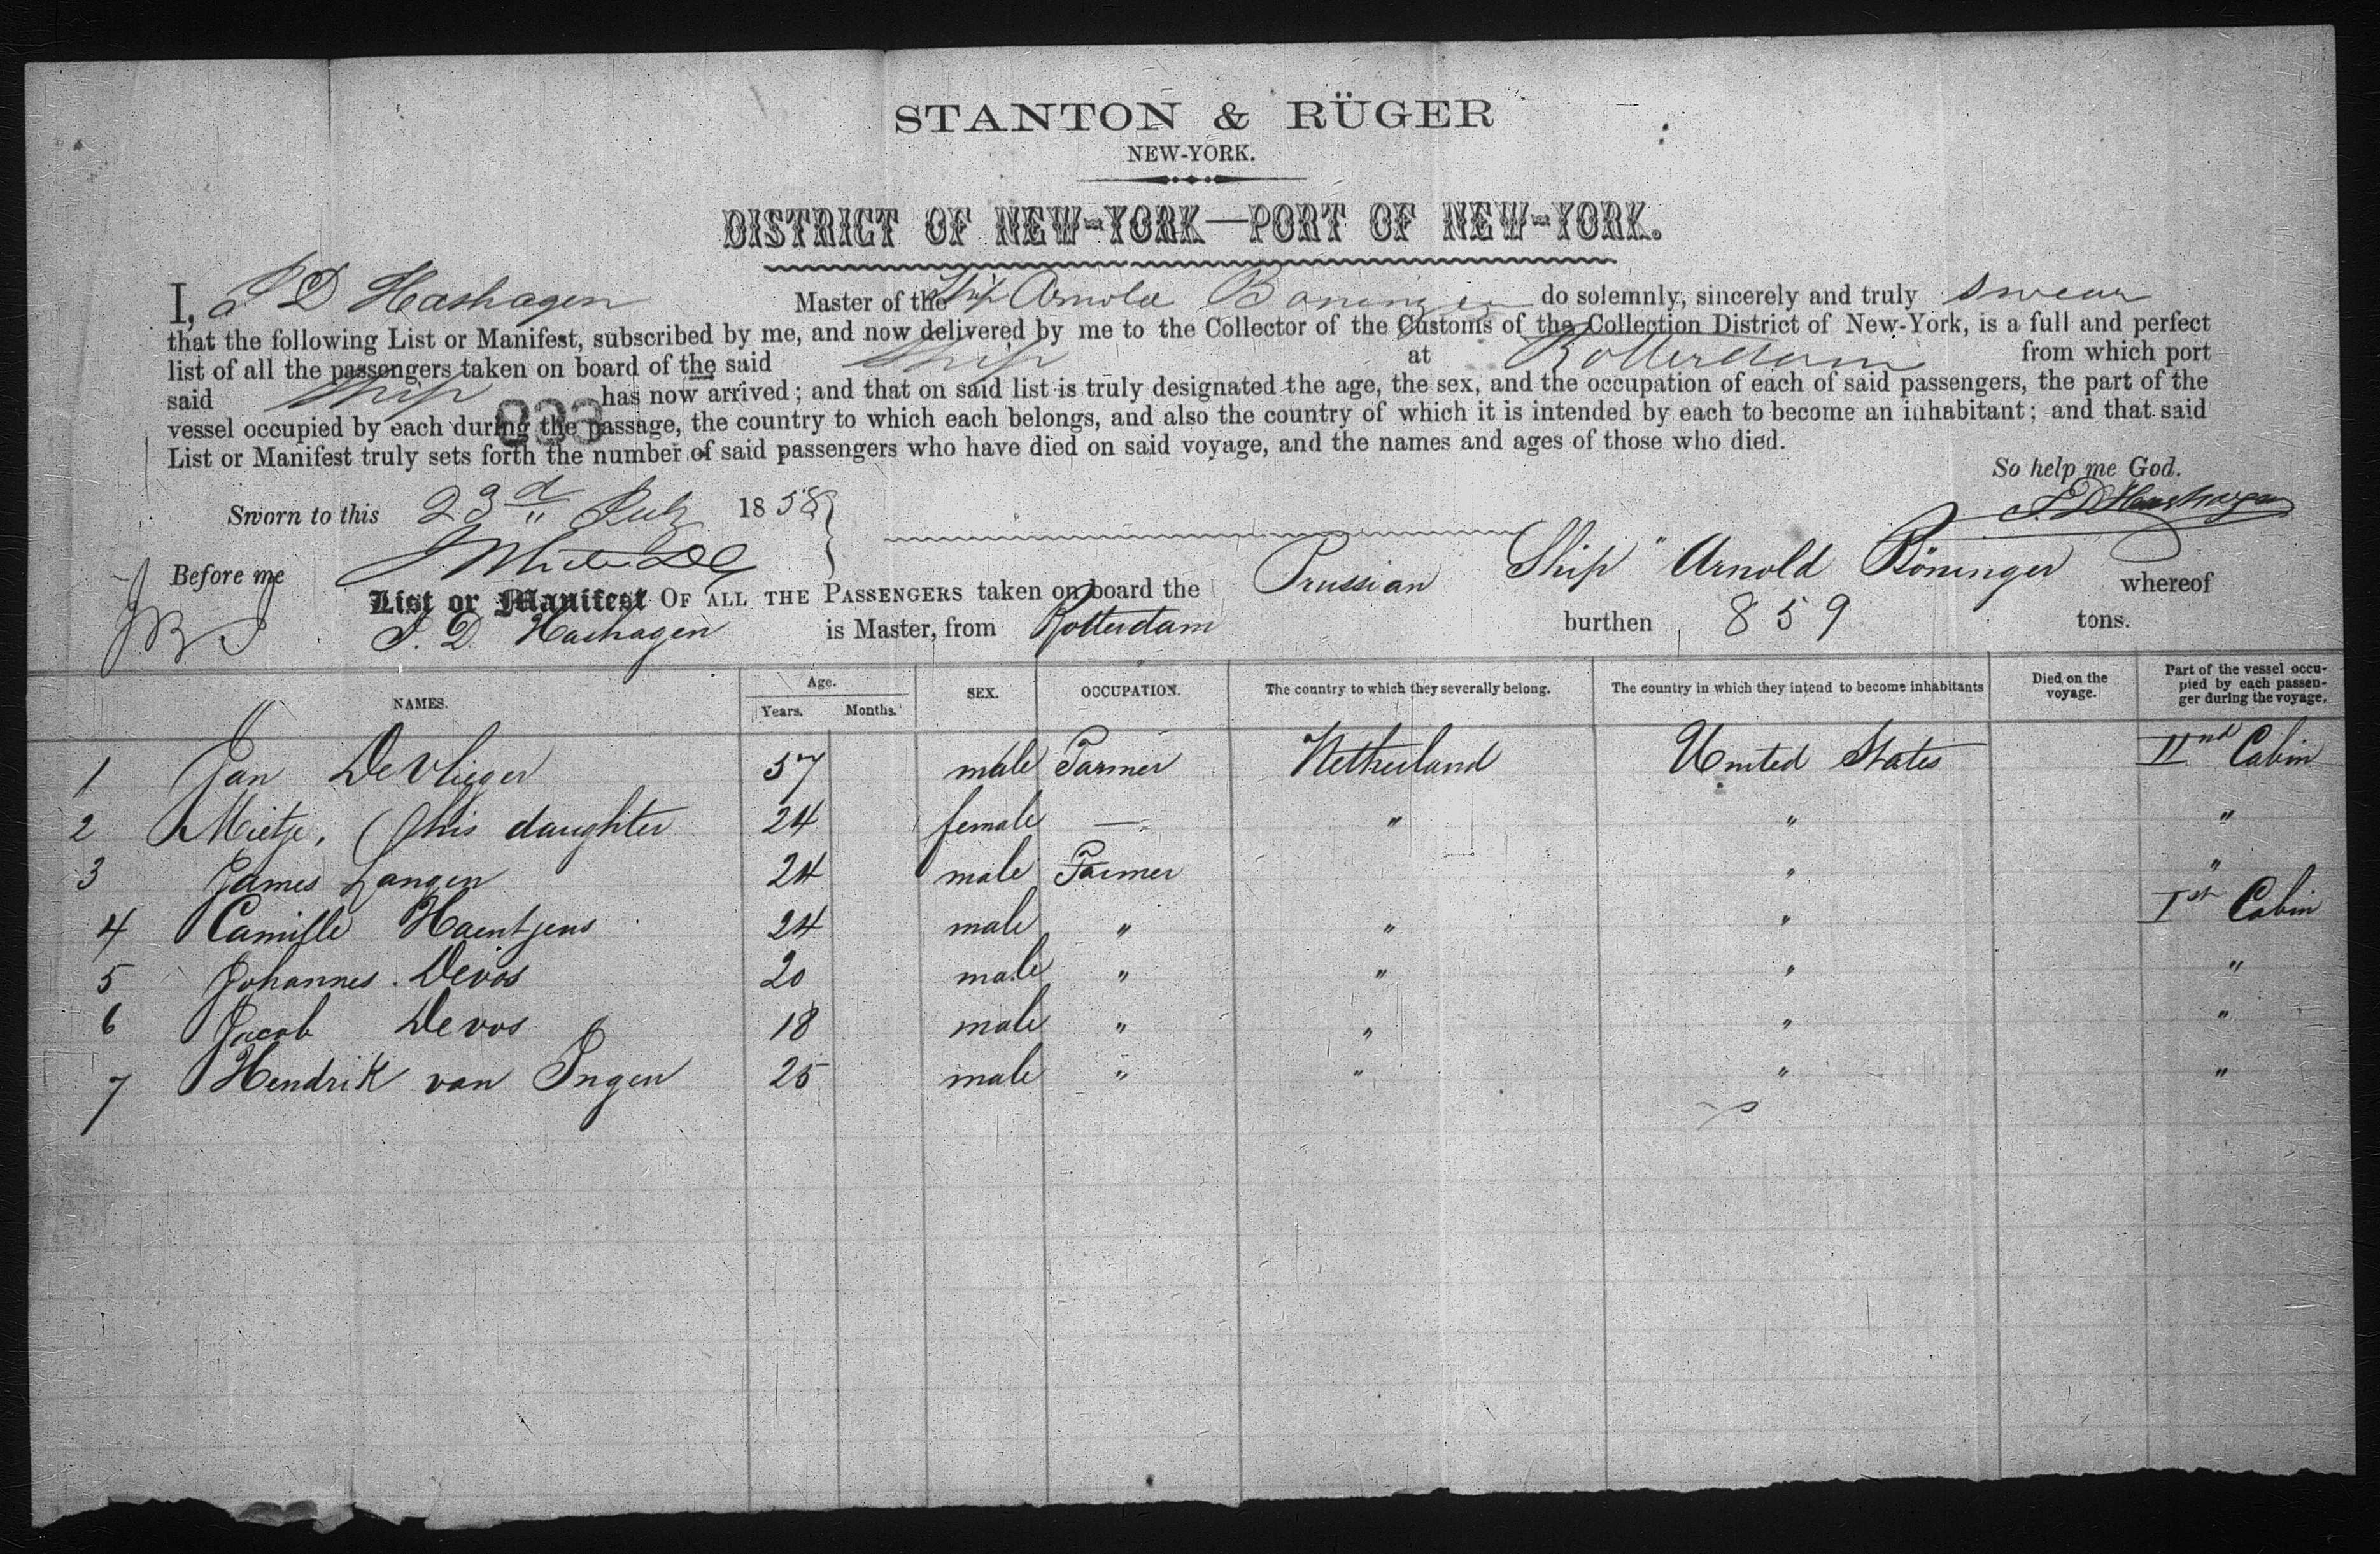 STANTON & RÜGER
NEW-YORK.
DISTRICT OF NEW-YORK—PORT OF NEW-YORK.
I, D Hashagen Master of the Ship Arnold Boninger do solemnly, sincerely and truly swear
that the following List or Manifest, subscribed by me, and now delivered by me to the Collector of the Customs of the Collection District of New-York, is a full and perfect
list of all the passengers taken on board of the said Ship at Rotterdam from which port
said Ship has now arrived; and that on said list is truly designated the age, the sex, and the occupation of each of said passengers, the part of the
vessel occupied by each during the passage, the country to which each belongs, and also the country of which it is intended by each to become an inhabitant; and that said
List or Manifest truly sets forth the number of said passengers who have died on said voyage, and the names and ages of those who died.
So help me God.
Sworn to this 23d July 1858
Before me
List or Manifest OF ALL THE PASSENGERS taken on board the Prussian Ship "Arnold Böninger whereof
D. Hashagen is Master, from Rotterdam burthen 859 tons.
NAMES. Age. Years. Months. SEX. OCCUPATION. The country to which they severally belong. The country in which they intend to become inhabitants Died on the voyage. Part of the vessel occupied by each passenger during the voyage.
1 Jan DeVlieger 57 male Farmer Netherland United States IInd Cabin
2 Mietje, his daughter 24 female — " " "
3 James Langen 24 male Farmer " "
4 Camille Haentjens 24 male " " " Ist Cabin
5 Johannes Devos 20 male " " " "
6 Jacob Devos 18 male " " " "
7 Hendrik van Ingen 25 male " " " "